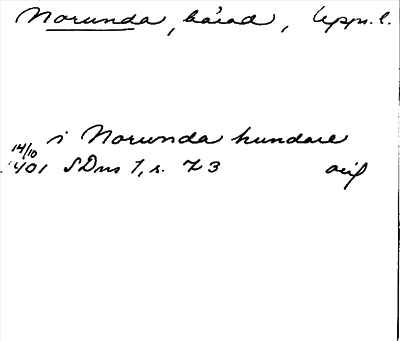 Norunda, härad, Upps. l.
i Norunda hundare
14/10
1401 SDns 1, s. 73 orig